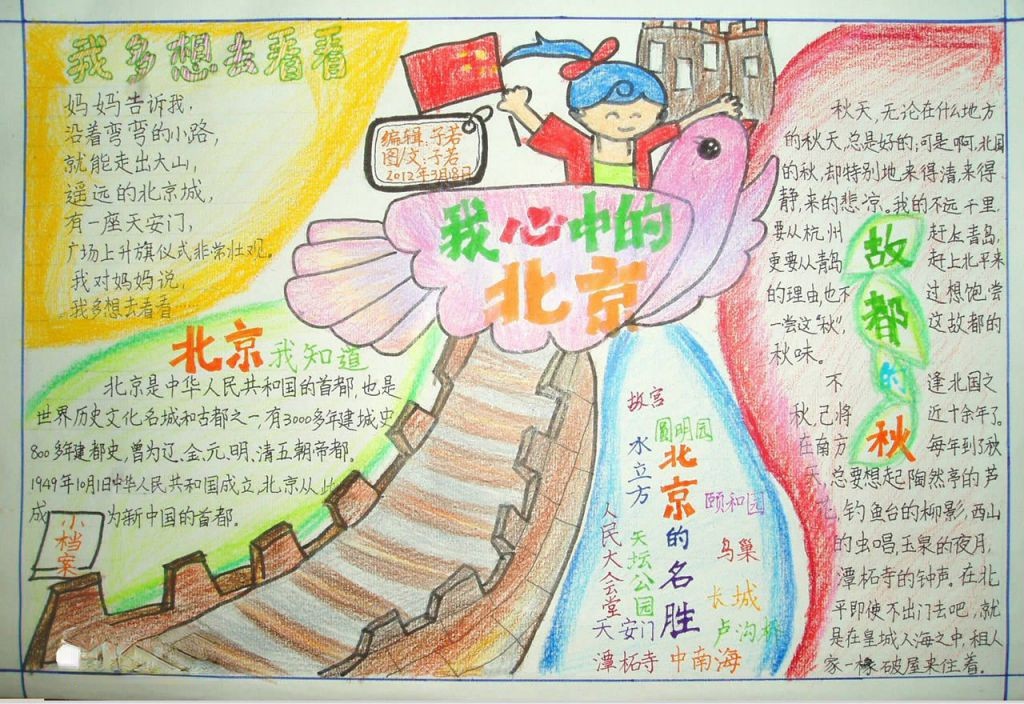 我多想去看看
妈妈告诉我，
沿着弯弯的小路，
就能走出大山，
遥远的北京城，
有一座天安门，
广场上升旗仪式非常壮观。
我对妈妈说，
我多想去看看……
编辑：子若
图/文：子若
2012年3月8日
我心中的
北京
北京我知道
北京是中华人民共和国的首都，也是
世界历史文化名城和古都之一，有3000多年建城史
800多年建都史，曾为辽、金、元、明、清五朝帝都。
1949年10月1日中华人民共和国成立，北京从此
成为新中国的首都。
小档案
北京的名胜
故宫
圆明园
水立方
颐和园
人民大会堂
天坛公园
鸟巢
长城
天安门
卢沟桥
潭柘寺
中南海
故都的秋
秋天，无论在什么地方
的秋天，总是好的；可是啊，北国
的秋，却特别地来得清，来得
静，来的悲凉。我的不远千里，
要从杭州赶上青岛，
更要从青岛赶上北平来
的理由，也不过想饱尝
一尝这“秋”，这故都的
秋味。
不逢北国之
秋，已将近十余年了。
在南方每年到了秋
天，总要想起陶然亭的芦
花，钓鱼台的柳影，西山
的虫唱，玉泉的夜月，
潭柘寺的钟声。在北
平即使不出门去吧，就
是在皇城人海之中，租人
家一椽破屋来住着。